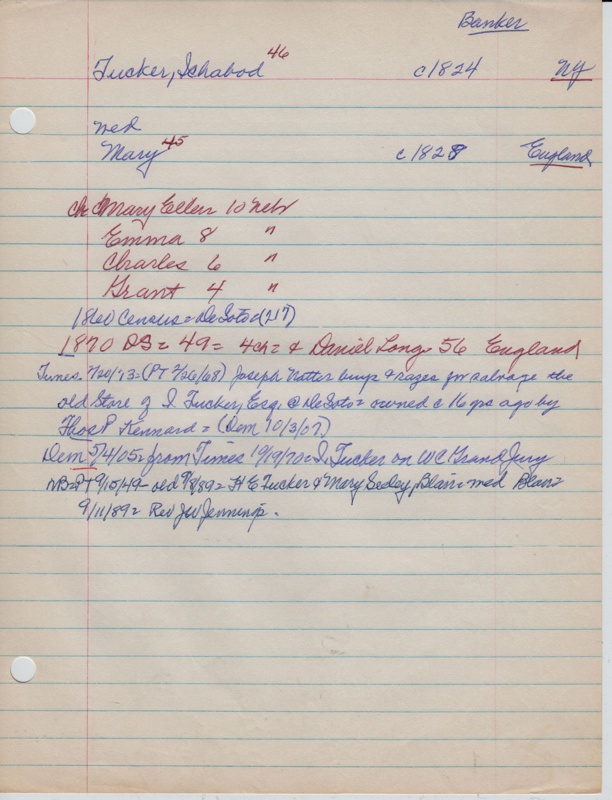 Banker
Tucker, Ichabod 46 c1824 NY
med
Mary 45 c1828 England
ch Mary Ellen 10 Nebr
Emma 8 "
Charles 6 "
Grant 4 "
1860 Census = DeSoto (217)
1870 DS = 49 = 4ch = & Daniel Long 56 England
Times 7/20/ (PT 2/26/68) Joseph Natter buys & razes for salvage the
old Store of I Tucker, Esq. @ DeSoto = owned c 16 yrs ago by
P Kennard = (Dem 10/3/07)
Dem 5/4/05 = from Times 10/19/70 = I. Tucker on WC Grand Jury
NB = PT 9/15/49 - old 9/8/89 = H E Tucker & Mary Blair med Blair
9/11/89 = Rev JW Jennings.